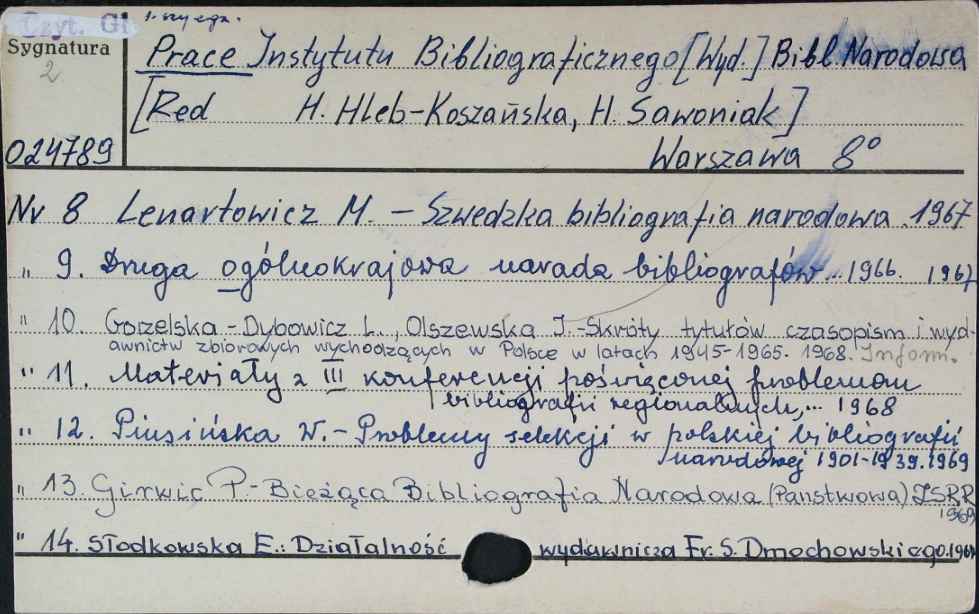 Czyt. Gł 1. wy egz.
Sygnatura
2
024789
Prace Instytutu Bibliograficznego [Wyd.] Bibl. Narodowa
[Red H. Hleb-Koszańska, H. Sawoniak]
Warszawa 8°
Nr 8 Lenartowicz M. – Szwedzka bibliografia narodowa. 1967
„ 9. Druga ogólnokrajowa narada bibliografów... 1966. 1967
„ 10. Gorzelska-Dybowicz L., Olszewska J. - Skróty tytułów czasopism i wyd
awnictw zbiorowych wychodzących w Polsce w latach 1945-1965. 1968. Inform.
„ 11. Materiały z III konferencji poświęconej problemom
bibliografii regionalnych,... 1968
„ 12. Piusińska W. – Problemy selekcji w polskiej bibliografii
narodowej 1901-1939. 1969
„ 13. Girwic P. - Bieżąca Bibliografia Narodowa (Państwowa) ZSRR
1969
„ 14. Słodkowska E.: Działalność wydawnicza Fr. S. Dmochowskiego.